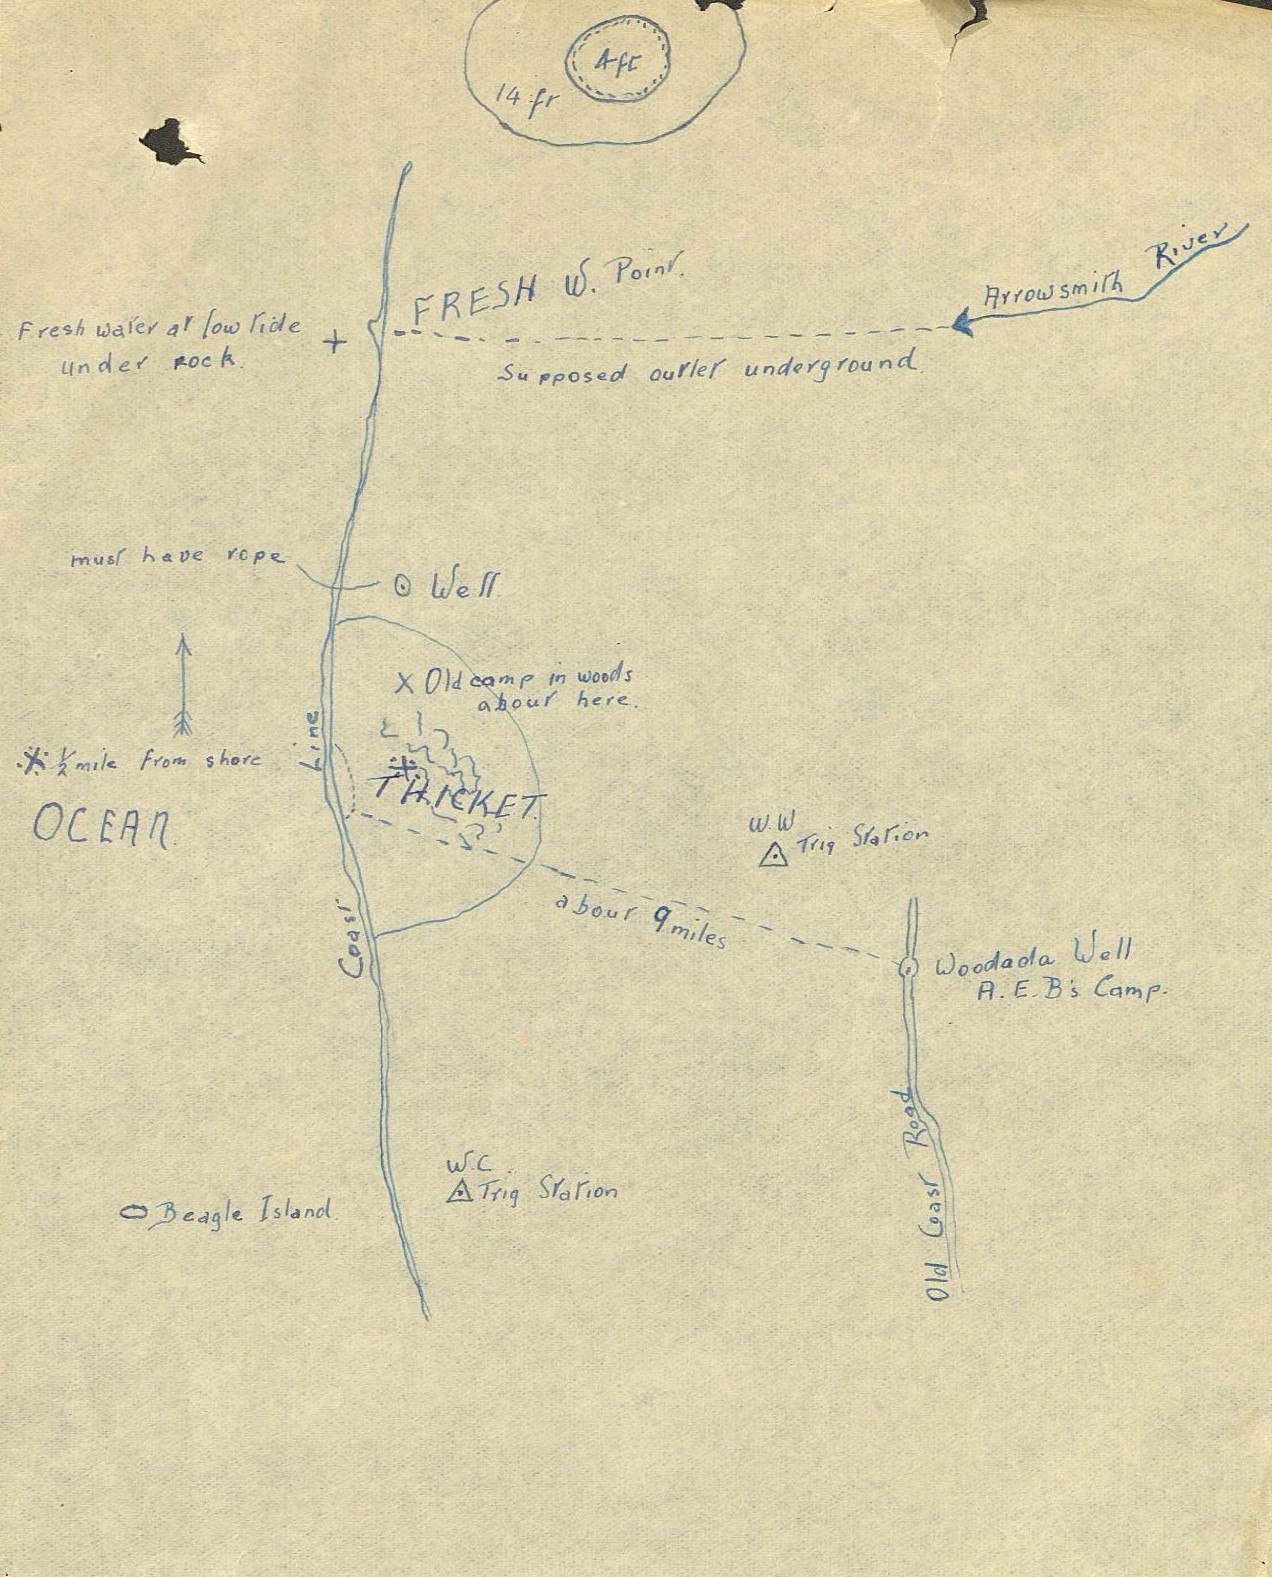 4 ft
14 ft
Arrowsmith River
FRESH W. Point.
Fresh water at low tide
under rock.
+
Supposed outlet underground
must have rope
Well.
X Old camp in woods
about here.
Line
※ ½ mile from shore
※
THICKET.
OCEAN.
W.W
Trig Station
about 9 miles
Coast
Woodada Well
A. E. B's Camp.
Old Coast Road
W.C.
Trig Station
Beagle Island.